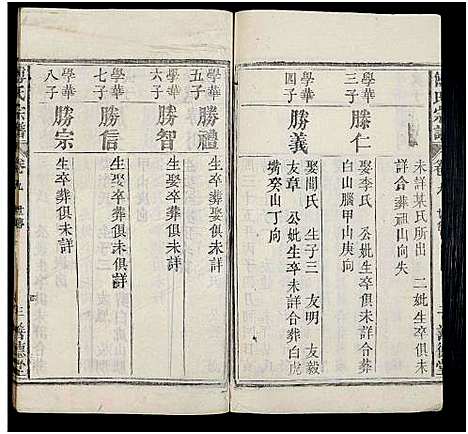 未詳某氏所出　二妣生卒俱未
詳合葬祖山向失
學華三子
勝仁
娶李氏　公妣生卒未詳合葬
白山腦甲山庚向
學華四子
勝義
娶閻氏　生子三　友明　友毅
友章　公妣生卒未詳合葬白虎
嘴癸山丁向
三　善德堂
宗譜
卷九　世傳
學華五子
勝禮
生卒葬俱未詳
學華六子
勝智
生娶卒葬俱未詳
學華七子
勝信
生娶卒葬未俱詳
學華八子
勝宗
生卒葬俱未詳
氏宗譜
卷九　世傳
三　善德堂